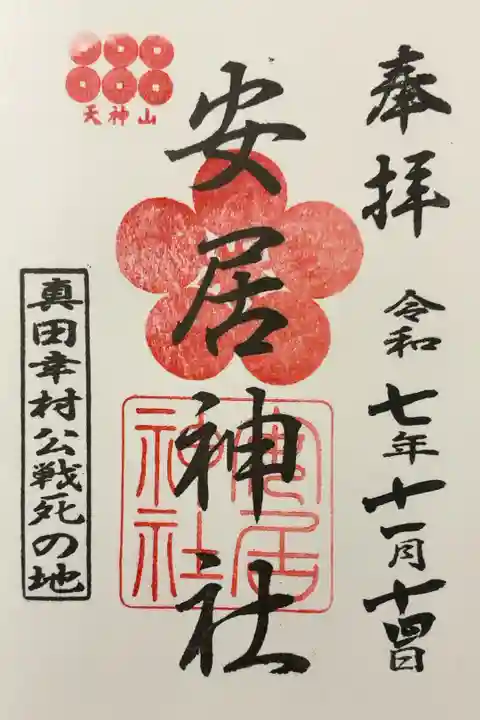 奉拝
令和七年十一月十四日
安居神社
天神山
安居神社
真田幸村公戦死の地